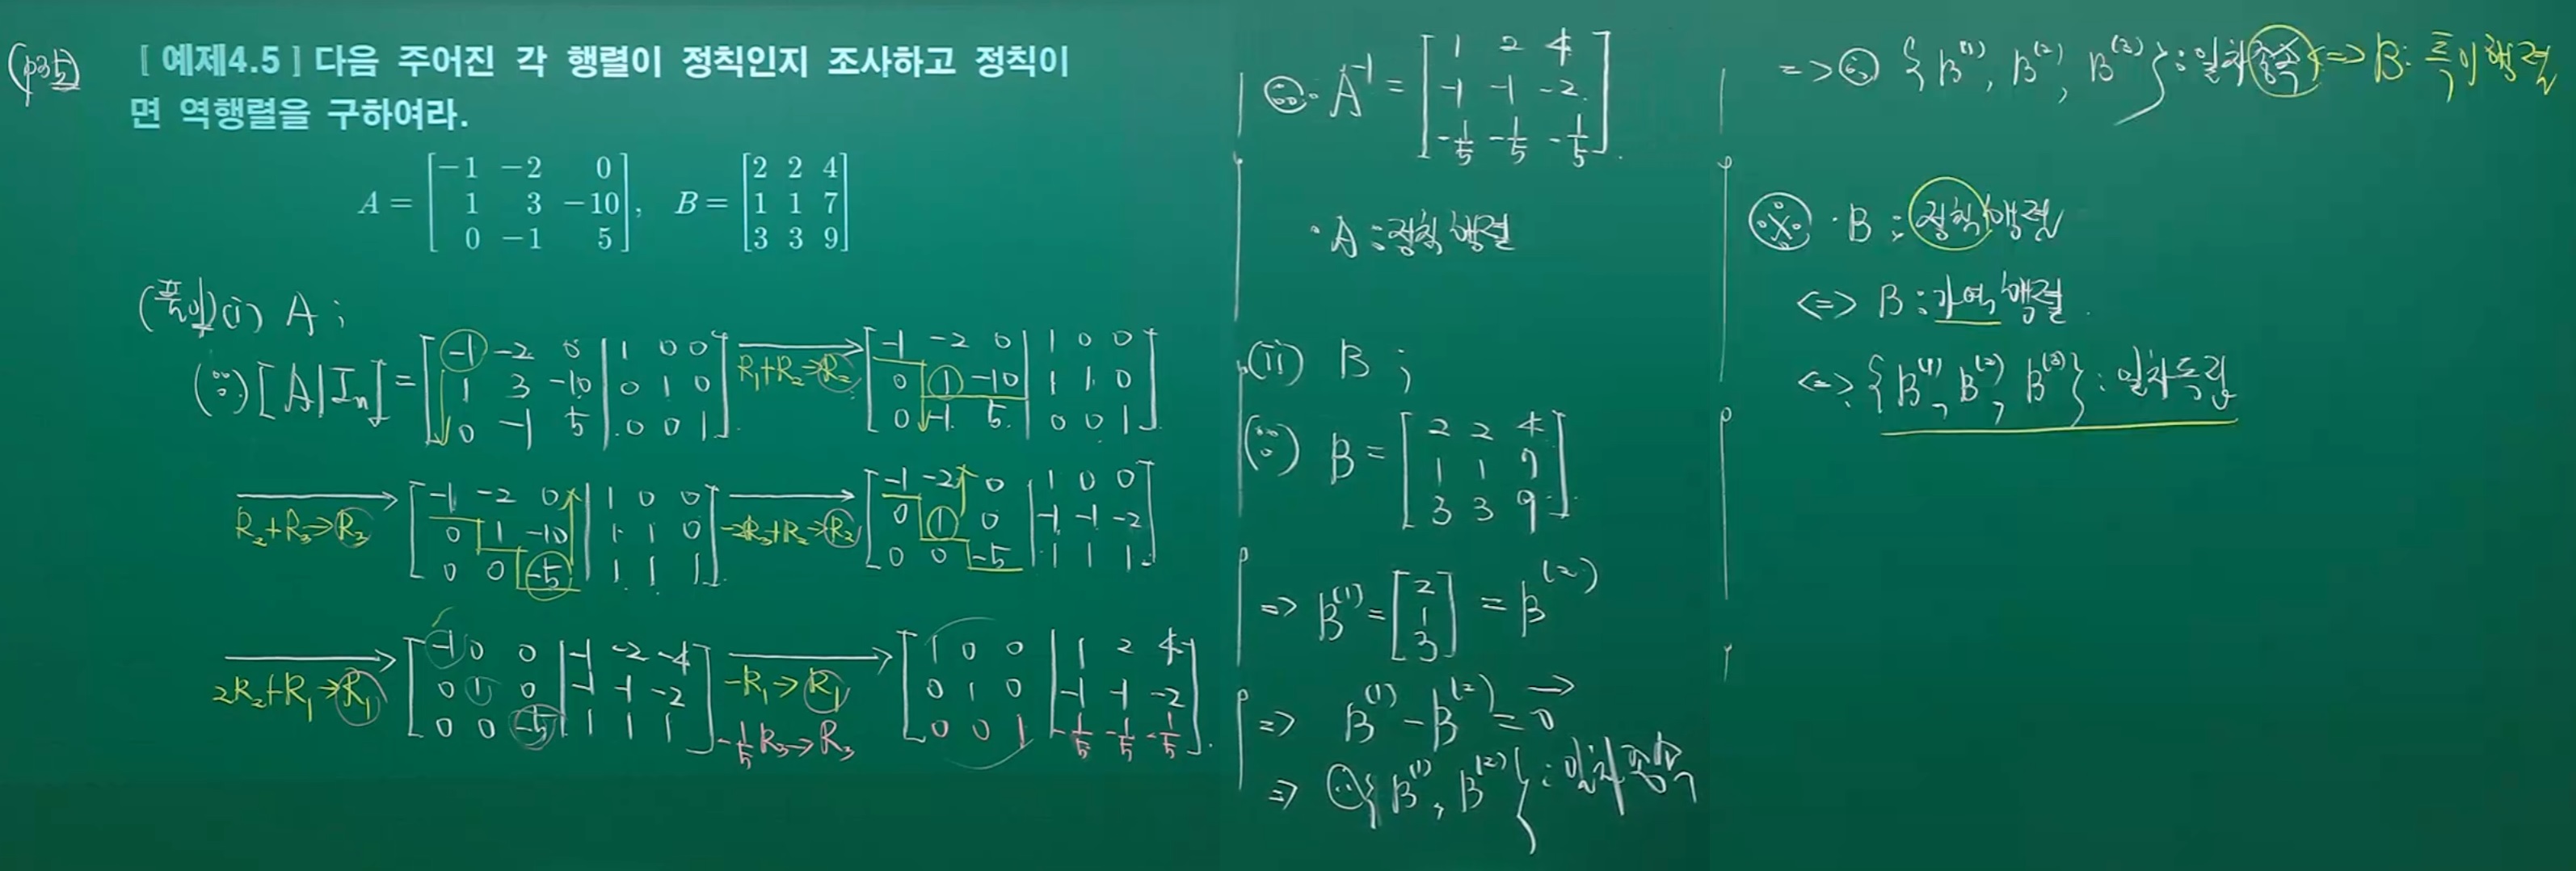 (p35)
[ 예제4.5 ] 다음 주어진 각 행렬이 정칙인지 조사하고 정칙이
면 역행렬을 구하여라.
A = [-1 -2 0; 1 3 -10; 0 -1 5], B = [2 2 4; 1 1 7; 3 3 9]
(풀이) (i) A ;
(∵) [A|Iₙ] = [-1 -2 0 | 1 0 0; 1 3 -10 | 0 1 0; 0 -1 5 | 0 0 1] R₁+R₂→R₂ [-1 -2 0 | 1 0 0; 0 1 -10 | 1 1 0; 0 -1 5 | 0 0 1]
R₂+R₃→R₃ [-1 -2 0 | 1 0 0; 0 1 -10 | 1 1 0; 0 0 -5 | 1 1 1] -2R₃+R₂→R₂ [-1 -2 0 | 1 0 0; 0 1 0 | -1 -1 -2; 0 0 -5 | 1 1 1]
2R₂+R₁→R₁ [-1 0 0 | -1 -2 -4; 0 1 0 | -1 -1 -2; 0 0 -5 | 1 1 1] -R₁→R₁ -1/5 R₃→R₃ [1 0 0 | 1 2 4; 0 1 0 | -1 -1 -2; 0 0 1 | -1/5 -1/5 -1/5]
∴ · A⁻¹ = [1 2 4; -1 -1 -2; -1/5 -1/5 -1/5].
· A : 정칙행렬
(ii) B ;
(∵) B = [2 2 4; 1 1 7; 3 3 9].
=> B⁽¹⁾ = [2; 1; 3] = B⁽²⁾
=> B⁽¹⁾ - B⁽²⁾ = 0→
=> ∴ {B⁽¹⁾, B⁽²⁾} : 일차종속
=> ∴ {B⁽¹⁾, B⁽²⁾, B⁽³⁾} : 일차종속 <=> B : 특이행렬
※ · B : 정칙행렬
<=> B : 가역행렬.
<=> {B⁽¹⁾, B⁽²⁾, B⁽³⁾} : 일차독립